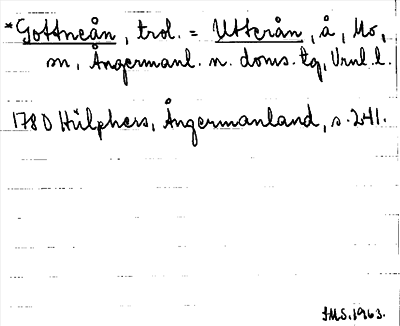 *Gottneån, trol. = Utterån, å, Mo,
sn, Ångermanl. n. doms. tg, Vrnl. l.
1780 Hülphers, Ångermanland, s. 241.
JMS. 1963.